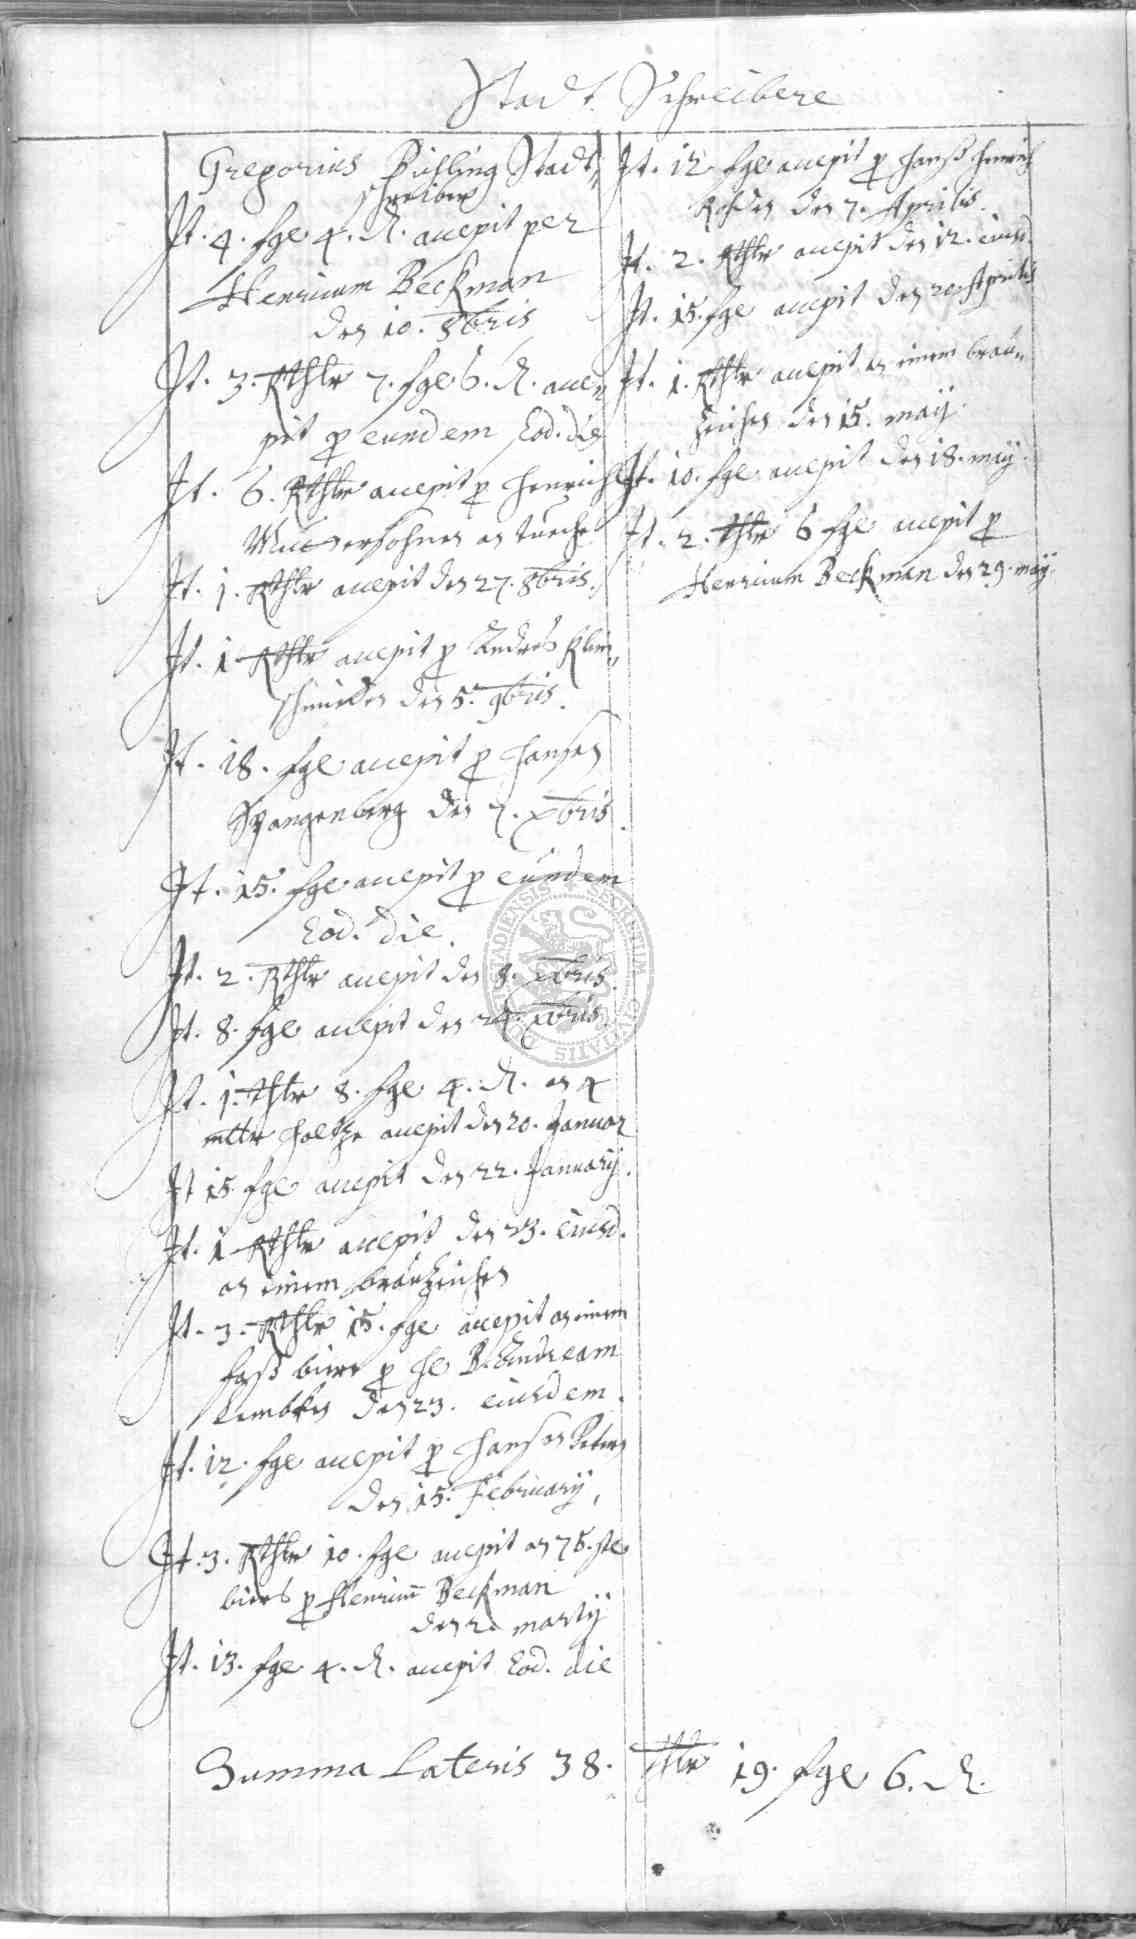 Stadt Schreibere
Gregorius Büssing Stadt
schreiber
It. 4. fge 4. ₰. accepit per
Henricum Beckman
den 10. 8bris
It. 3. Rthlr 7. fge 6. ₰. acce
pit p eundem Eod. die
It. 6. Rthlr accepit p Henrich
an tuech
It. 1. Rthlr accepit den 27. 8bris.
It. 1 Rthlr accepit p Andres Klein
schmiden den 5. 9bris.
It. 18. fge accepit p Hansen
Spangenberg den 7. xbris.
It. 15. fge accepit p eundem
Eod. die.
It. 2. Rthlr accepit den 8. xbris.
It. 8. fge accepit den 24. xbris.
It. 1. thlr 8. fge 4. ₰. an 4
mltr Holtze accepit den 20. Januar
It 15. fge accepit den 22. January.
It. 1 Rthlr accepit den 23. eiusd.
an einem brauzeichen
It. 3. Rthlr 15. fge accepit an einem
faß biere p H B. Andream
Lembken den 23. eiusdem.
It. 12. fge accepit p Hansen Peters
den 15. February,
It. 3. Rthlr 10. fge accepit an 75. ste
biers p Henricum Beckman
den 2 martij
It. 13. fge 4. ₰. accepit Eod. die
It. 12 fge accepit p Hanß Henrich
Rohden den 7. Aprilis.
It. 2. Rthlr accepit den 12. eiusd.
It. 15. fge accepit den 20. Aprilis
It. 1. Rthlr accepit an einem brau
zeichen den 15. maij.
It. 10. fge accepit den 18. maij.
It. 2. thlr 6 fge accepit p
Henricum Beckman den 29. maij.
Summa Lateris 38. thlr 19. fge 6. ₰.
SECRETUM CIVITATIS STADIENSIS